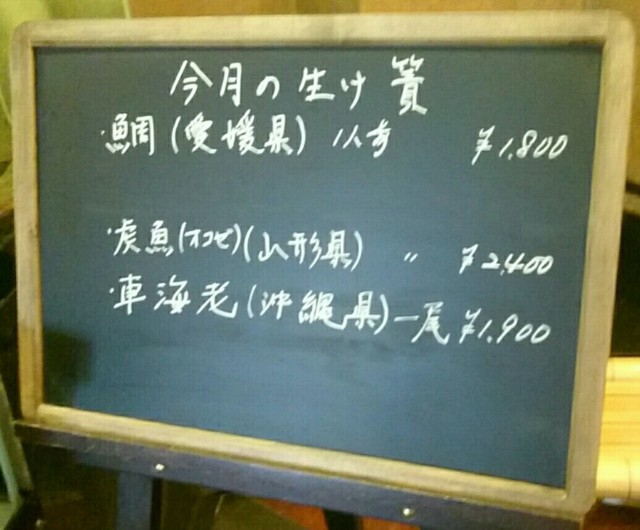 今月の生け簀
・鯛(愛媛県) 1人前 ¥1.800
・虎魚(オコゼ)(山形県) 〃 ¥2.400
・車海老(沖縄県)一尾 ¥1.900